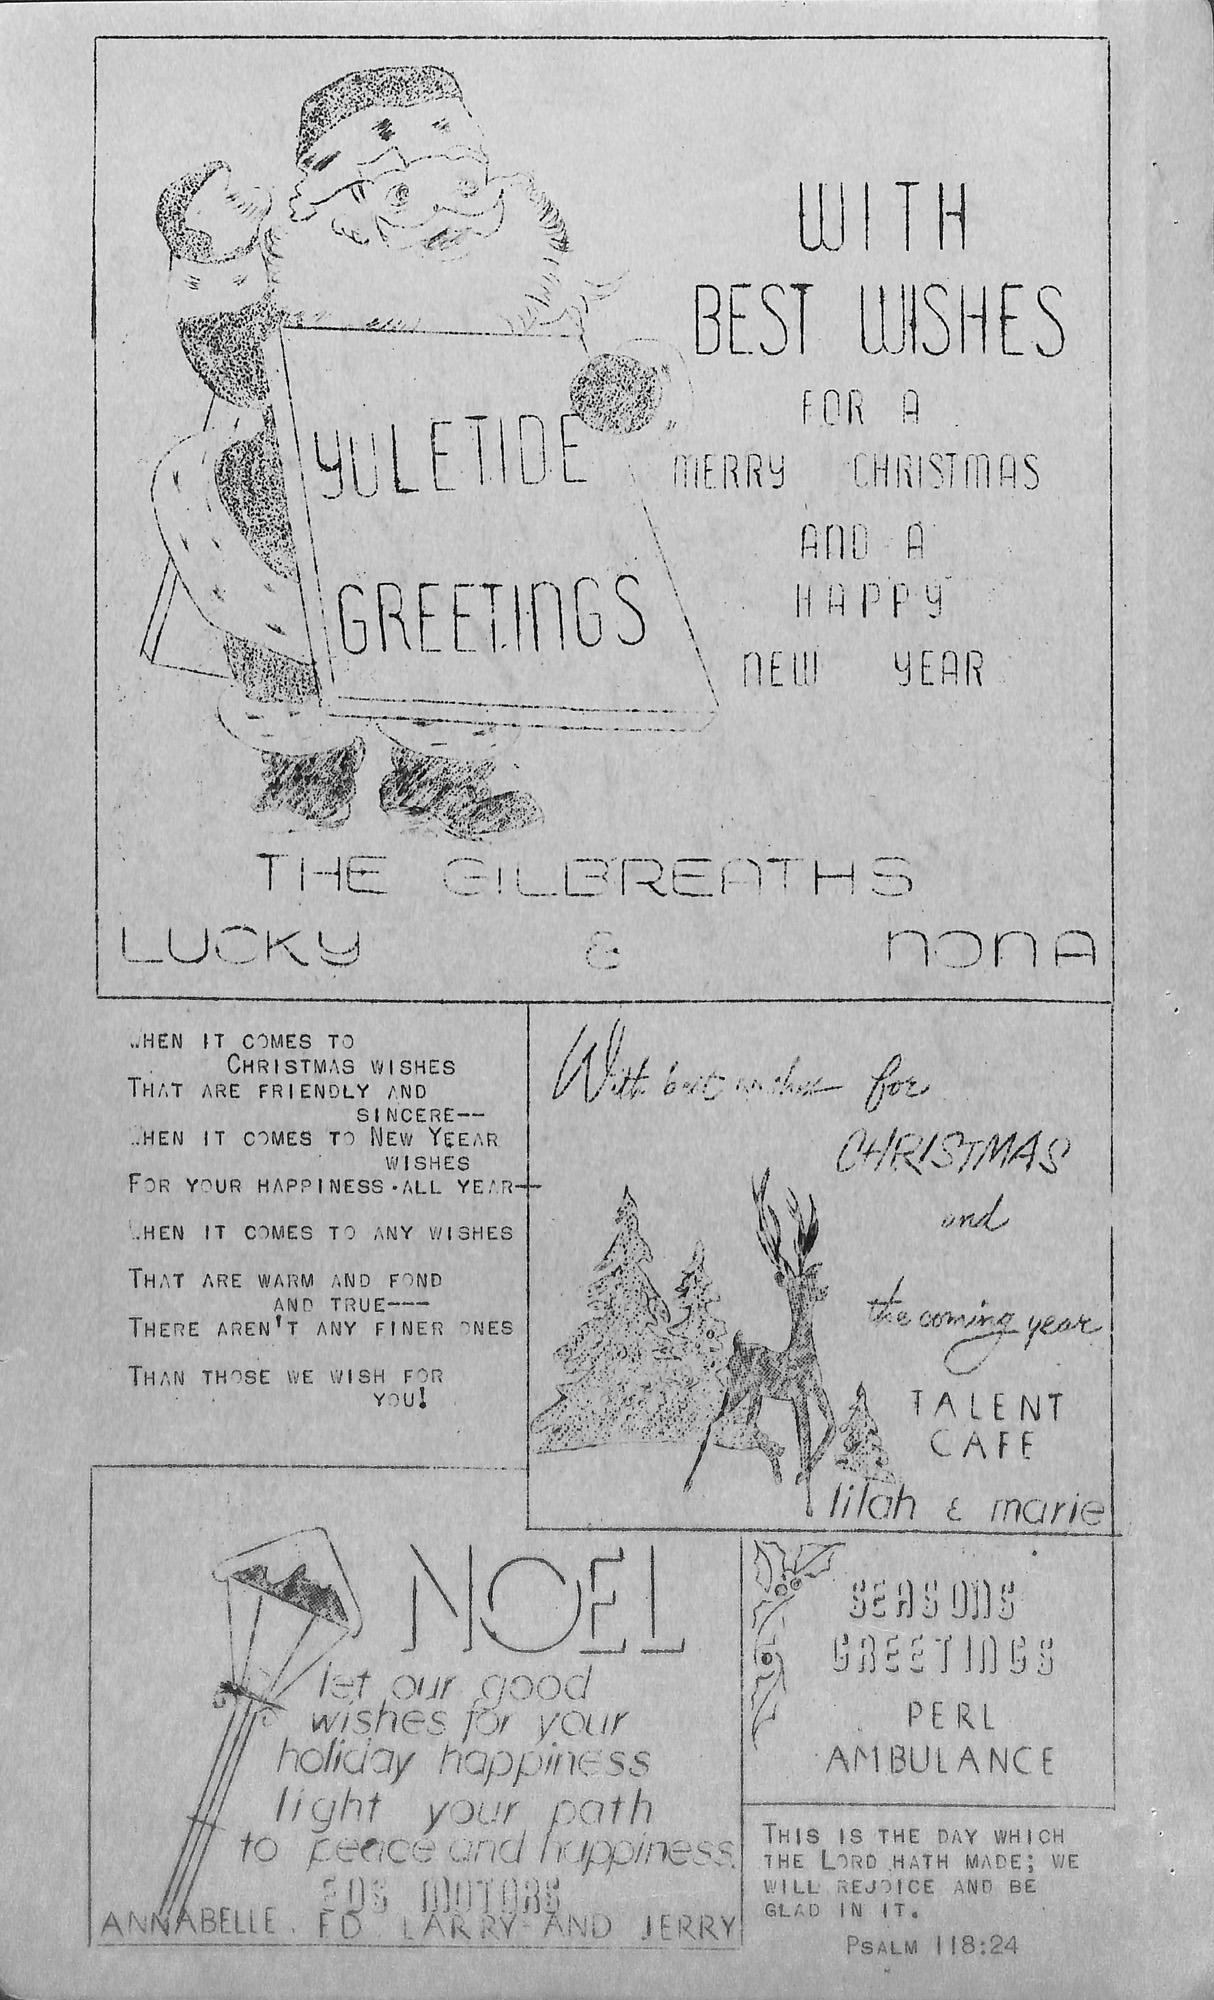 YULETIDE
GREETINGS
WITH
BEST WISHES
FOR A
MERRY CHRISTMAS
AND A
HAPPY
NEW YEAR
THE GILBREATHS
LUCKY & NONA
WHEN IT COMES TO
CHRISTMAS WISHES
THAT ARE FRIENDLY AND
SINCERE--
WHEN IT COMES TO NEW YEEAR
WISHES
FOR YOUR HAPPINESS ALL YEAR--
WHEN IT COMES TO ANY WISHES
THAT ARE WARM AND FOND
AND TRUE---
THERE AREN'T ANY FINER ONES
THAN THOSE WE WISH FOR
YOU!
With best wishes for
CHRISTMAS
and
the coming year
TALENT
CAFE
lilah & marie
NOEL
let our good
wishes for your
holiday happiness
light your path
to peace and happiness
EDS MOTORS
ANNABELLE. ED LARRY AND JERRY
SEASONS
GREETINGS
PERL
AMBULANCE
THIS IS THE DAY WHICH
THE LORD HATH MADE; WE
WILL REJOICE AND BE
GLAD IN IT.
PSALM 118:24